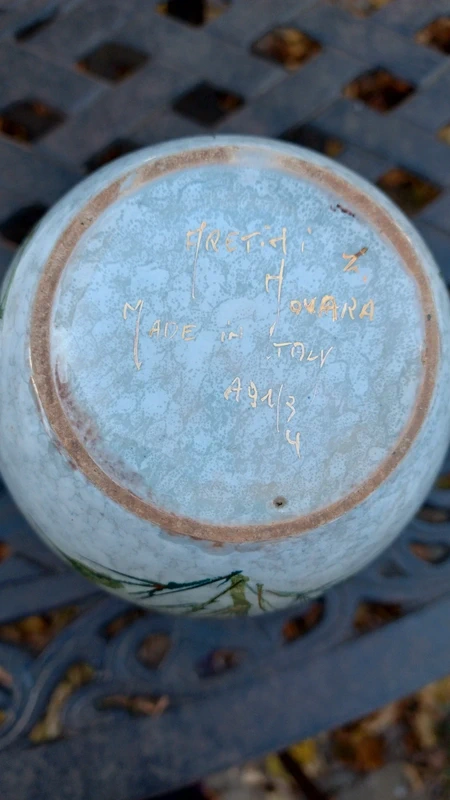 ARETINI
Z.
NOVARA
MADE IN ITALY
A91/3
4